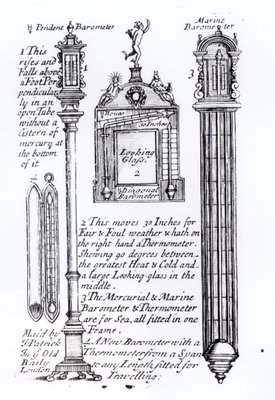 Pendent Barometer
Marine
Barometer
1 This
rises and
Falls above
a Foot Per
pendicular
ly in an
open Tube
without a
Cistern of
mercury at
the bottom
of it
1
3
30 Inches
Looking
Glass.
2
Diagonal
Barometer
2 This moves 30 Inches for
Fair & Foul weather & hath on
the right hand a Thermometer.
Shewing 90 degrees between
the greatest Heat & Cold and
a large Looking-glass in the
middle.
3 The Mercurial & Marine
Barometer & Thermometer
are for Sea, all fitted in one
Frame.
4. A New Barometer with a
Thermometer from a Span
to any Length fitted for
Travelling:
Made by
J: Patrick
In ye Old
Baily
London.